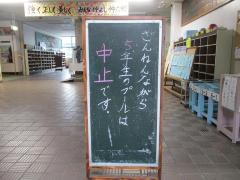 ざんねんながら
5年生のプールは
中止です。